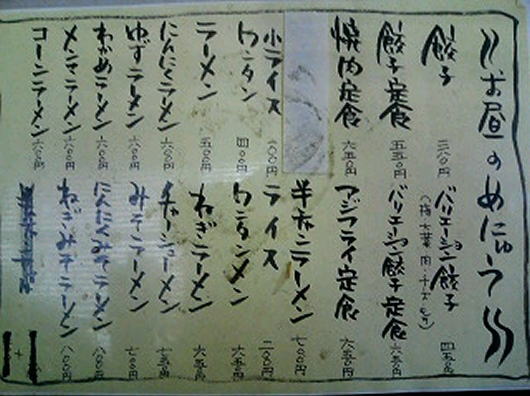 お昼のめにゅう
餃子 三五〇円
バリエーション餃子 四五〇円
餃子定食 五五〇円
バリエーション餃子定食 六五〇円
焼肉定食 六五〇円
アジフライ定食 六五〇円
半チャンラーメン 七〇〇円
小ライス 一〇〇円
ライス 二〇〇円
ワンタン 四〇〇円
ワンタンメン 六五〇円
ラーメン 五〇〇円
ねぎラーメン 六五〇円
にんにくラーメン 六〇〇円
チャーシューメン 七五〇円
ゆずラーメン 六〇〇円
みそラーメン 七〇〇円
わかめラーメン 六〇〇円
にんにくみそラーメン 八〇〇円
メンマラーメン 六〇〇円
ねぎみそラーメン 八〇〇円
コーンラーメン 六〇〇円